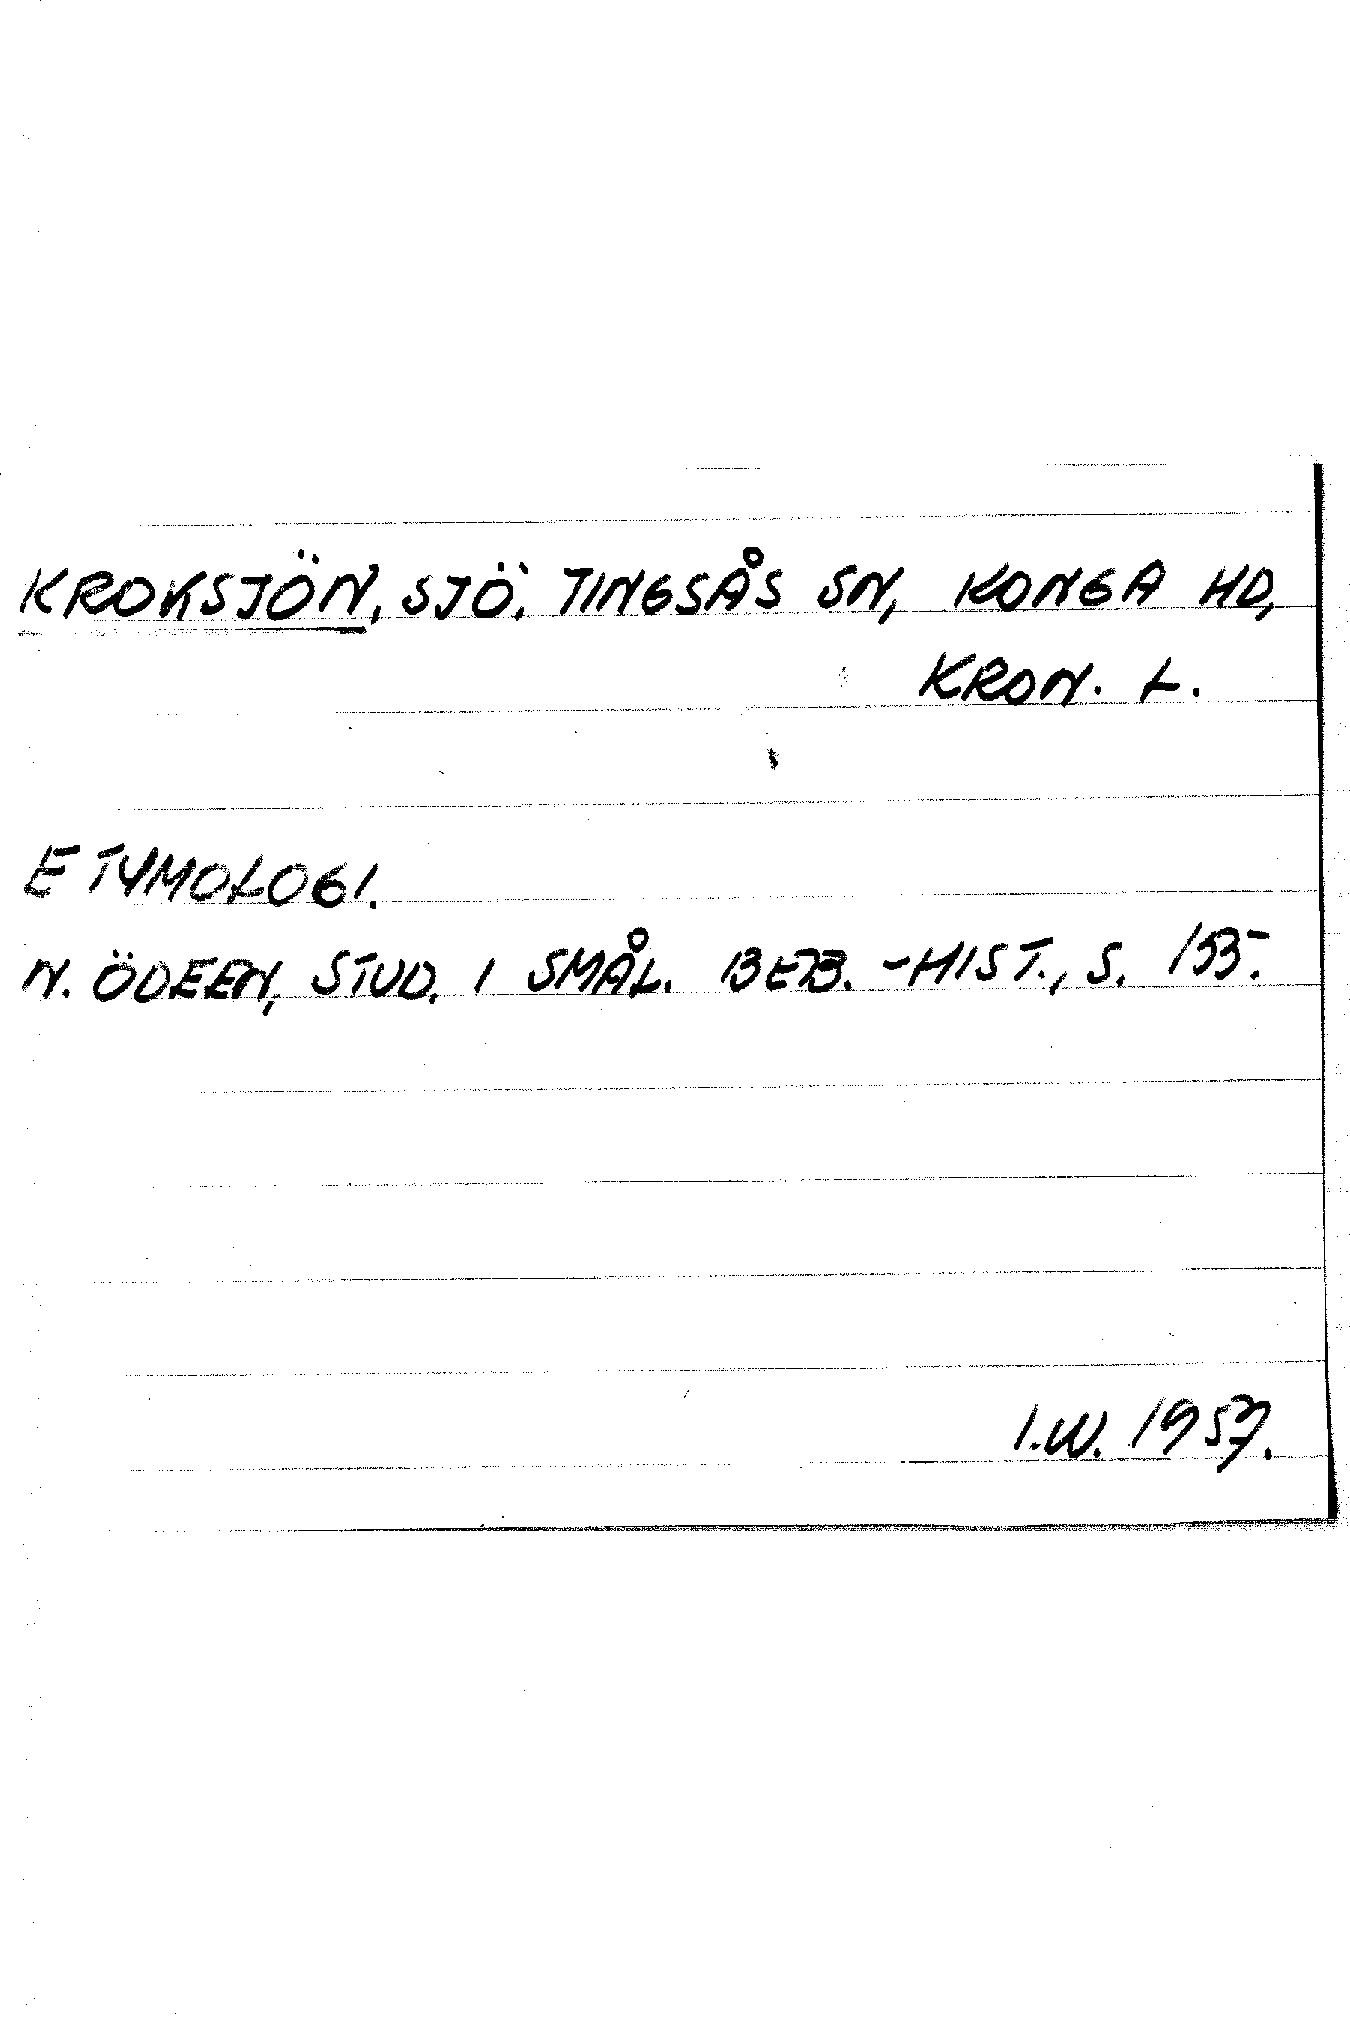 KROKSJÖN, SJÖ, TINGSÅS SN, KONGA HD,
KRON. L.
ETYMOLOGI.
N. ÖDEEN, STUD. I SMÅL. BEB.-HIST., S.
I.W. 1957.